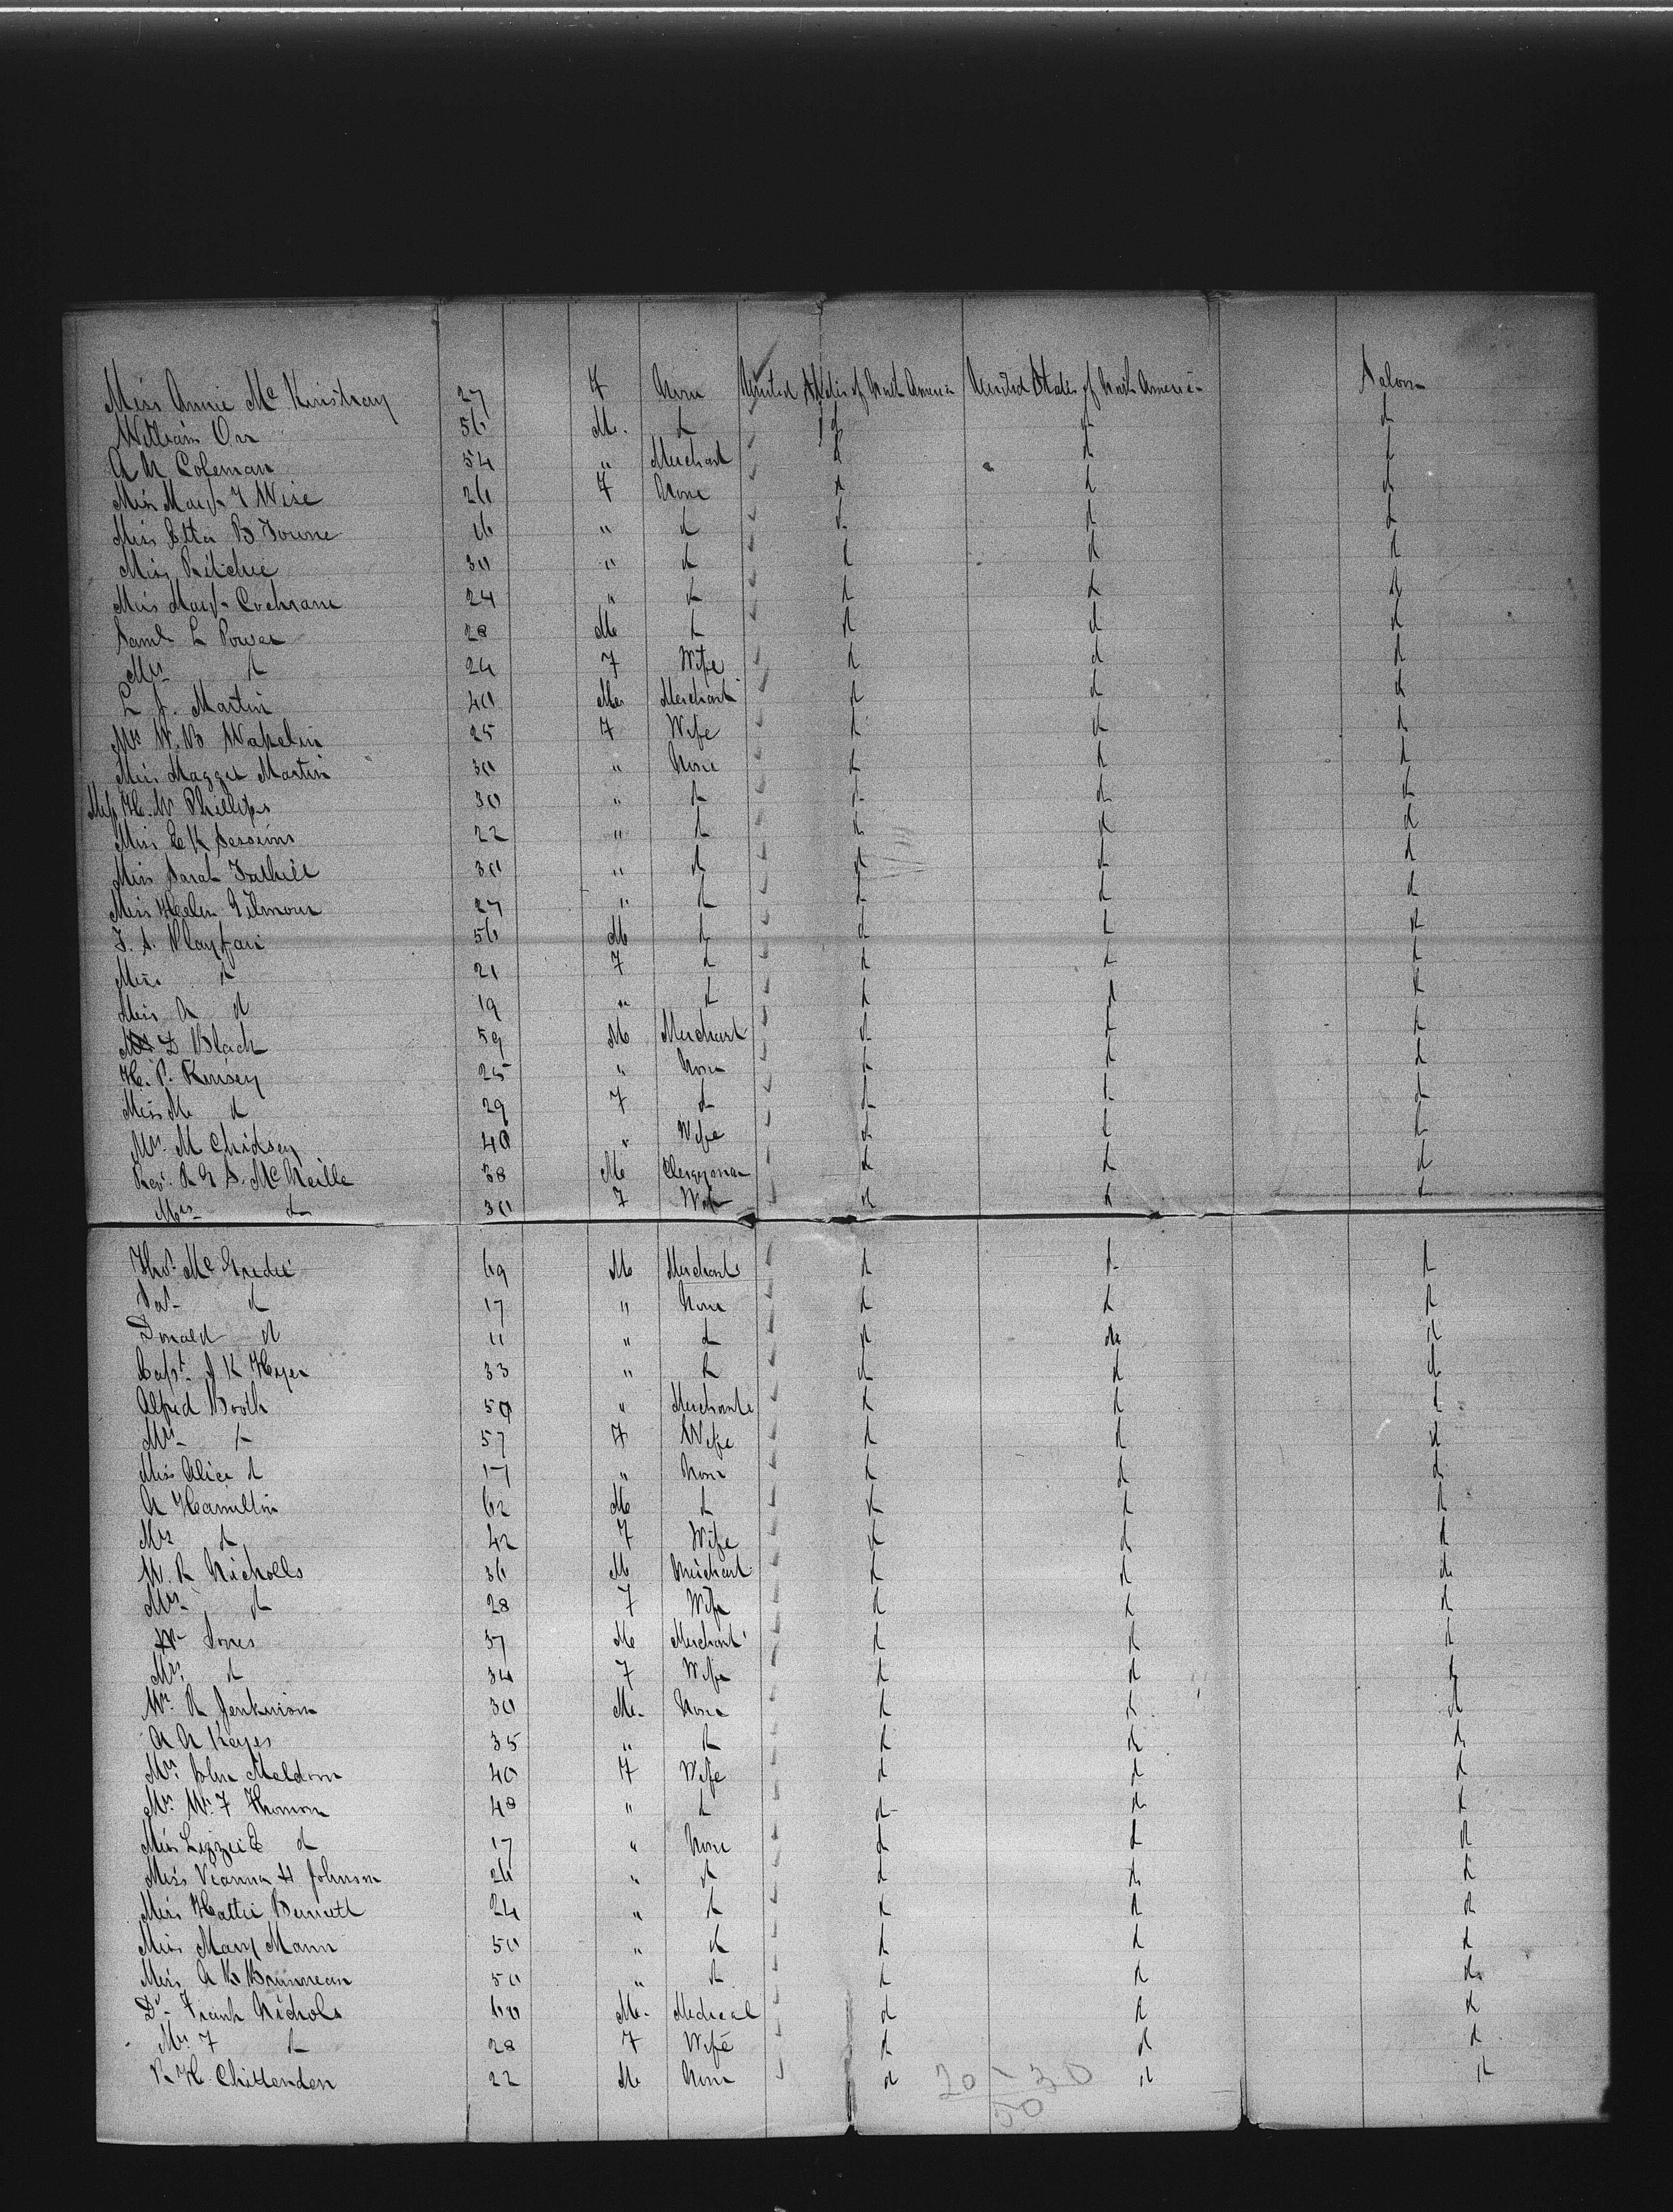 Miss Annie Mc Kinstray 27 F None United States of North America United States of North America Saloon
William Orr 56 M. d d d d
A N Coleman 54 " Merchant d d d
Miss Mary F Wise 26 F None d d d
Miss Etta B Towne 16 " d d d d
Miss Ritchie 30 " d d d d
Miss Mary Cochrane 24 " d d d d
Saml L Power 28 M d d d d
Mrs d 24 F Wife d d d
L J. Martin 40 M Merchant d d d
Mrs W. B Wakelin 25 F Wife d d d
Miss Maggie Martin 30 " None d d d
Miss H. W Phillips 30 " d d d d
Miss E K Sessions 22 " d d d d
Miss Sarah Tuthill 30 " d d d d
Miss Helen Gilmour 27 " d d d d
J. S. Playfair 56 M d d d d
Miss d 21 F d d d d
Miss A d 19 " d d d d
D Black 59 M Merchant d d d
H. P. Kinsey 25 " None d d d
Miss M d 29 F d d d d
Mrs. M Chidsey 40 " Wife d d d
Revd. R G S. Mc Neille 38 M Clergyman d d d
Mrs d 30 F Wife d d d
Thos Mc Gredie 69 M Merchant d d d
d 17 " None d d d
Donald d 11 " d d do d
Capt. A K Heyer 33 " d d d d
Alfred Booth 50 " Merchant d d d
Mrs d 57 F Wife d d d
Miss Alice d 17 " None d d d
A Hamilton 62 M d d d d
Mrs d 42 F Wife d d d
W. R Nicholls 36 M Merchant d d do
Mrs d 28 F Wife d d d
Jones 37 M Merchant d d d
Mrs. d 34 F Wife d d d
Wm R Jenkinson 30 M. None d d d
A A Keyes 35 " d d d d
Mrs. John Meldrum 40 F Wife d d d
Mrs. Wm. F Thomson 48 " d d d d
Miss Lizzie E d 17 " None d d d
Miss Vianna H Johnson 26 " d d d d
Miss Hattie Bennett 24 " d d d d
Miss Mary Mann 50 " d d d d
Miss A B Brunneau 50 " d d d do
Dr. Frank Nichols M. Medical d d d
Mrs F d 28 F Wife d d d
R H. Chittenden 22 M None d d d
20 - 30
50